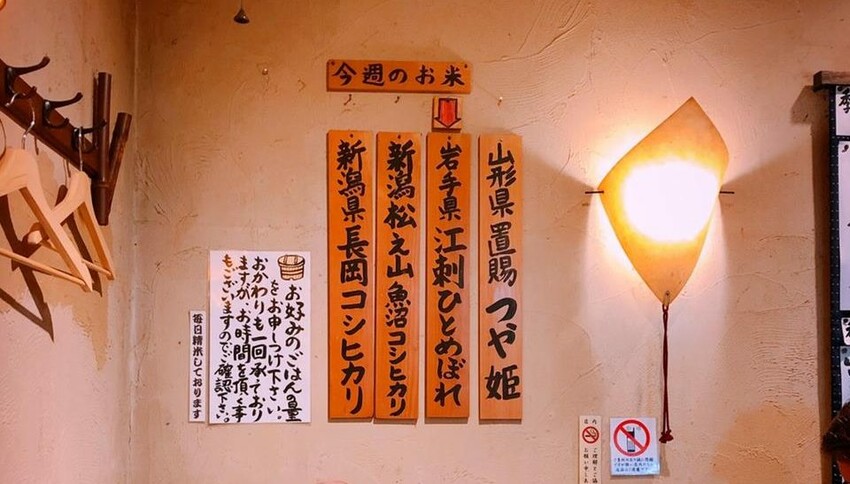 今週のお米
山形県置賜 つや姫
岩手県 江刺ひとめぼれ
新潟 松之山 魚沼コシヒカリ
新潟県 長岡コシヒカリ
お好みのごはんの量
をお申しつけ下さい。
おかわりも一回承っており
ますが、お時間を頂く事
もございますのでご確認下さい。
毎日精米しております
店内